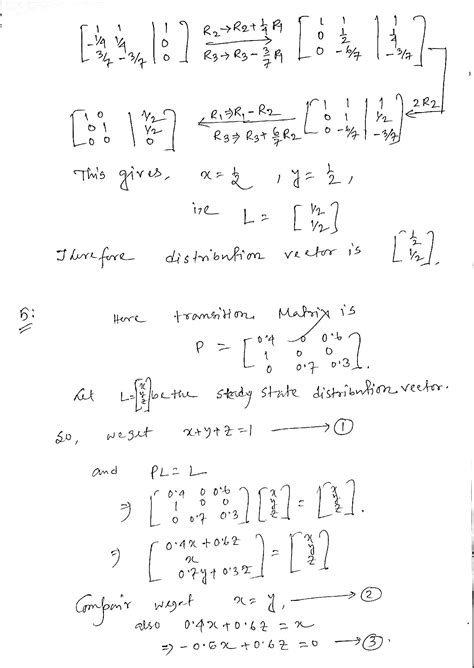 [1 1 | 1; -1/4 1/4 | 0; 3/7 -3/7 | 0] R2→R2+1/4 R1, R3→R3-3/7 R1 [1 1 | 1; 0 1/2 | 1/4; 0 -6/7 | -3/7]
[1 0 | 1/2; 0 1 | 1/2; 0 0 | 0] R1⇒R1-R2, R3⇒R3+6/7 R2 [1 1 | 1; 0 1 | 1/2; 0 -6/7 | -3/7] 2R2
This gives, x = 1/2 , y = 1/2 ,
i.e L = [1/2; 1/2]
Therefore distribution vector is [1/2; 1/2].
5: Here transition Matrix is
P = [0.4 0 0.6; 1 0 0; 0 0.7 0.3].
Let L=[x; y; z] be the steady state distribution vector.
So, we get x+y+z=1 → ①
and PL = L
⇒ [0.4 0 0.6; 1 0 0; 0 0.7 0.3] [x; y; z] = [x; y; z].
⇒ [0.4x+0.6z; x; 0.7y+0.3z] = [x; y; z]
we get x = y, → ②
also 0.4x+0.6z = x
⇒ -0.6x+0.6z =0 → ③.